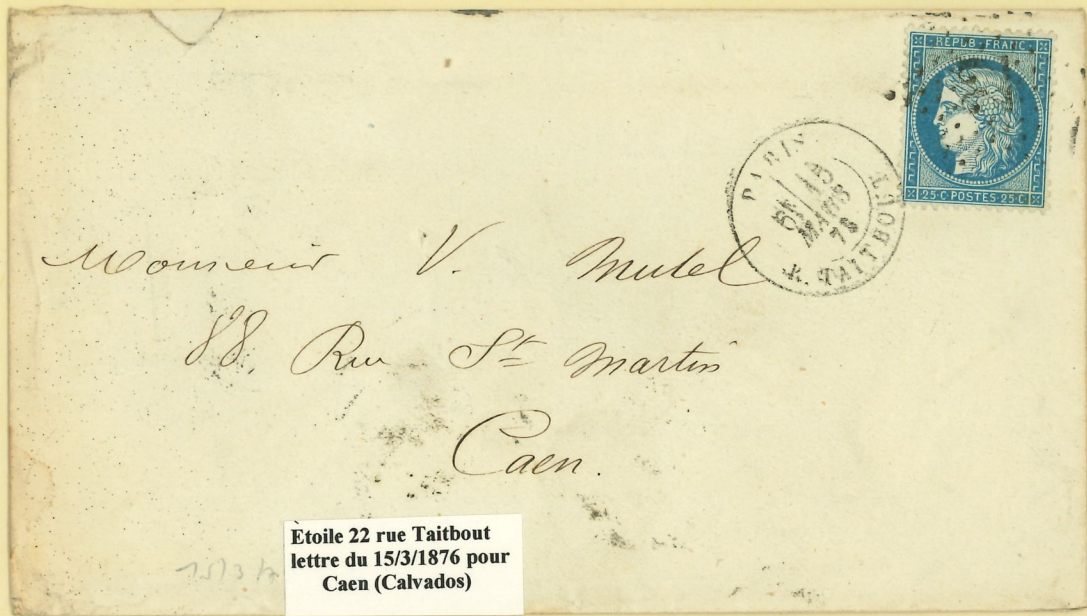 REPUB · FRANC ·
25 · C · POSTES · 25 · C
PARIS
5E 15
MARS
76
R. TAITBOUT
Monsieur V. Mutel
88, Rue St Martin
Caen.
Etoile 22 rue Taitbout
lettre du 15/3/1876 pour
Caen (Calvados)
15/3/